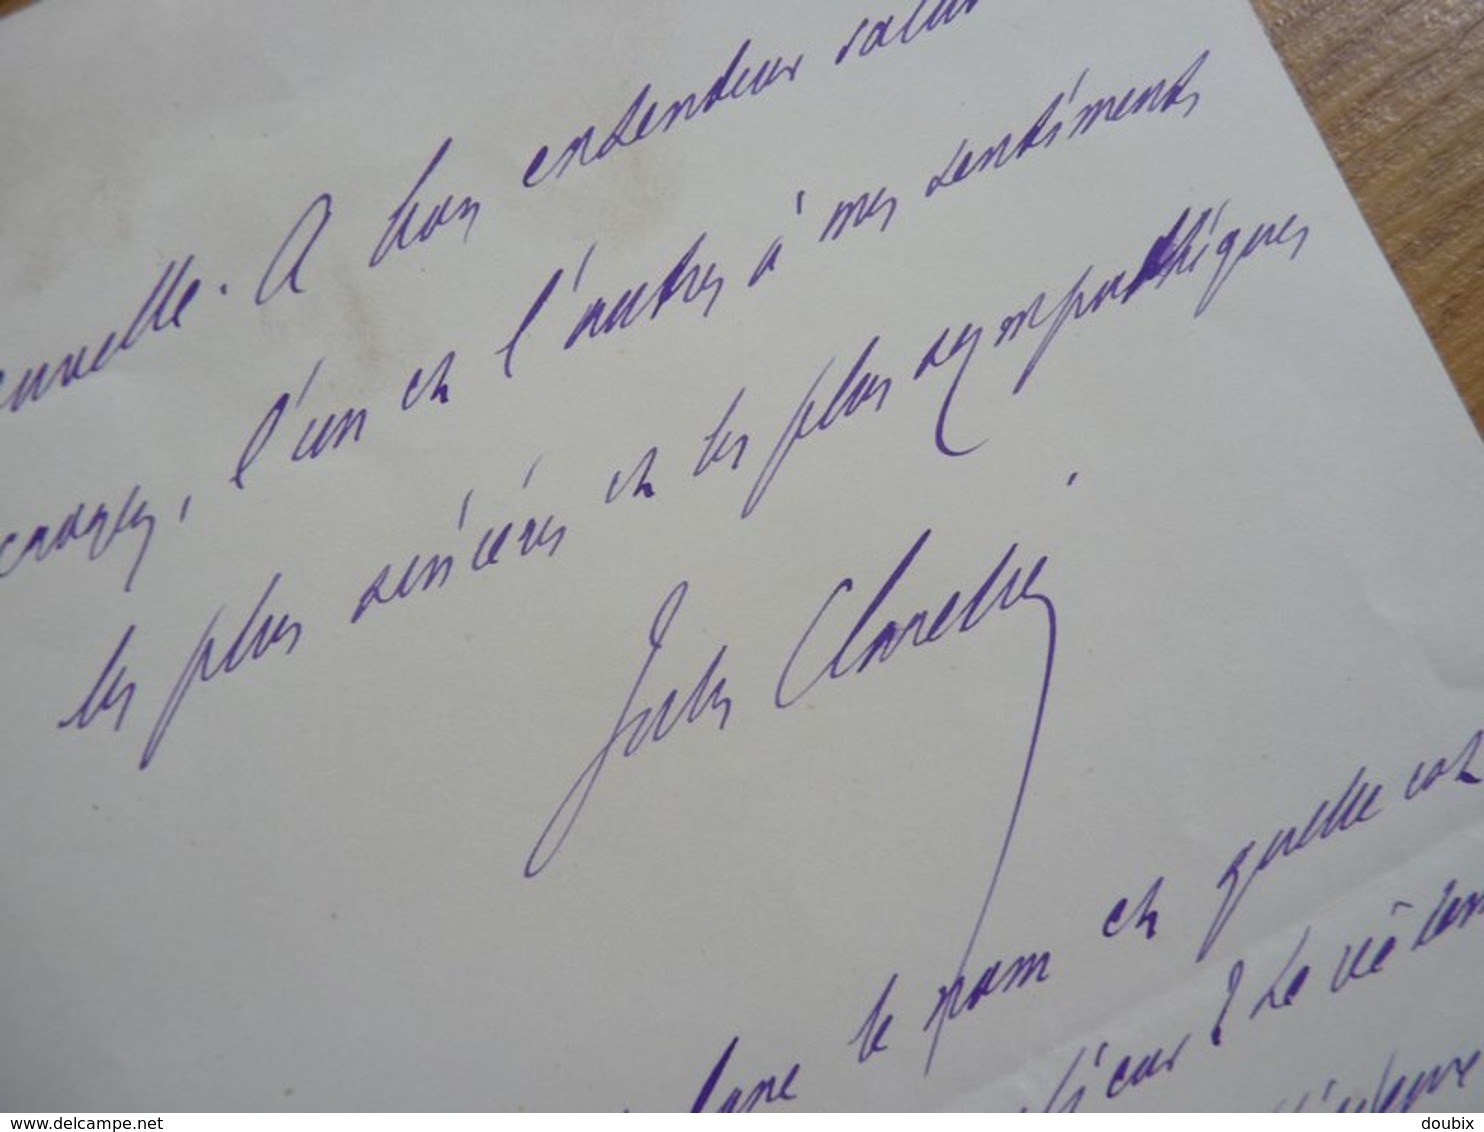 A bon entendeur salut
croyez, l'un et l'autre, à mes sentiments
les plus sincères et les plus sympathiques
.
Jules Claretie
le nom et quelle est
? Le
www.delcampe.net
doubix